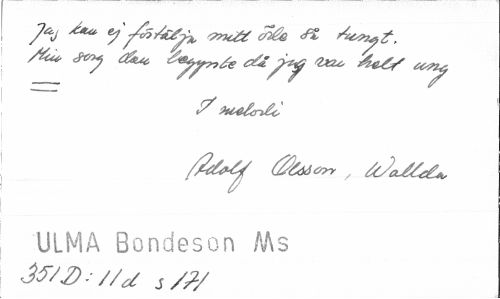 Jag kan ej förtälja mitt öde så tungt.
Min sorg den begynte då jag var helt ung
I melodi
Adolf Olsson, Wallda
ULMA Bondeson Ms
351 D: 11d s 171